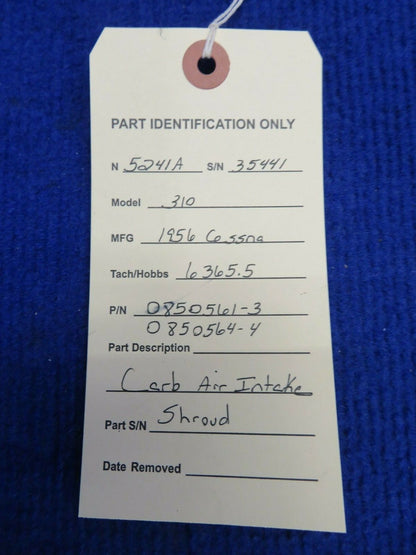 PART IDENTIFICATION ONLY
N 5241A S/N 35441
Model 310
MFG 1956 Cessna
Tach/Hobbs 6365.5
P/N 0850561-3
0850564-4
Part Description
Carb Air Intake
Part S/N Shroud
Date Removed